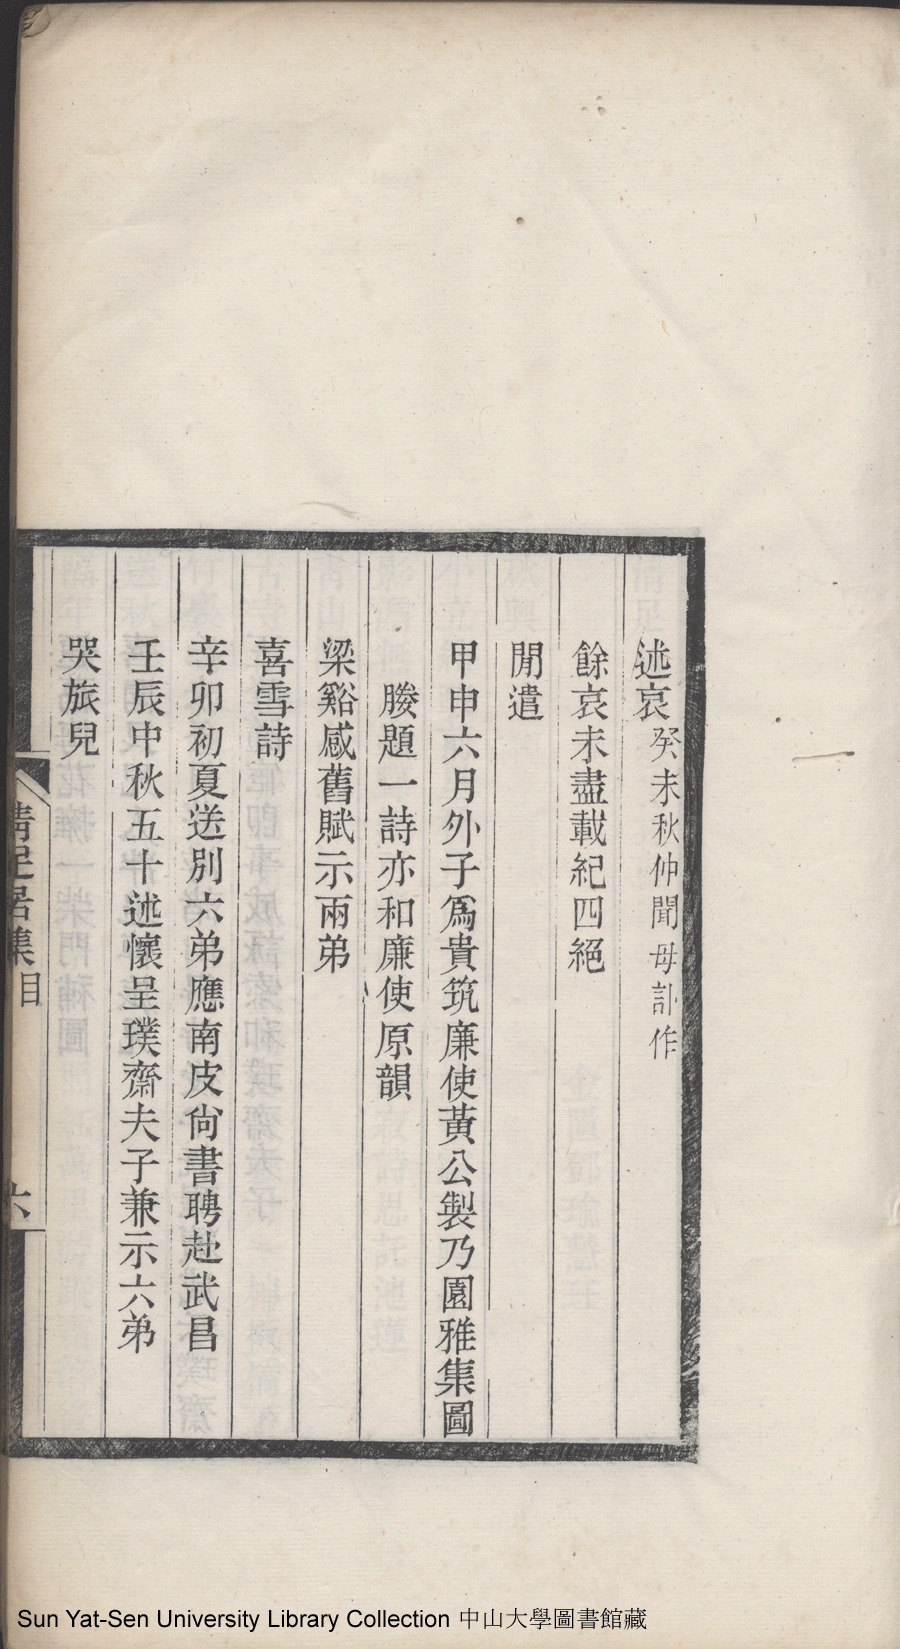 述哀癸未秋仲聞母訃作
餘哀未盡載紀四絕
閒遣
甲申六月外子爲貴筑廉使黃公製乃園雅集圖
媵題一詩亦和廉使原韻
梁谿感舊賦示兩弟
喜雪詩
辛卯初夏送別六弟應南皮尙書聘赴武昌
壬辰中秋五十述懷呈璞齋夫子兼示六弟
哭旅兒
清足居集目
六
Sun Yat-Sen University Library Collection 中山大學圖書館藏